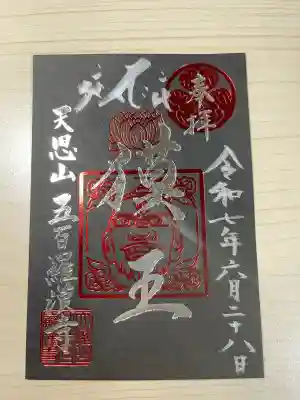 奉拝
獏王
令和七年六月二十八日
天恩山五百羅漢寺